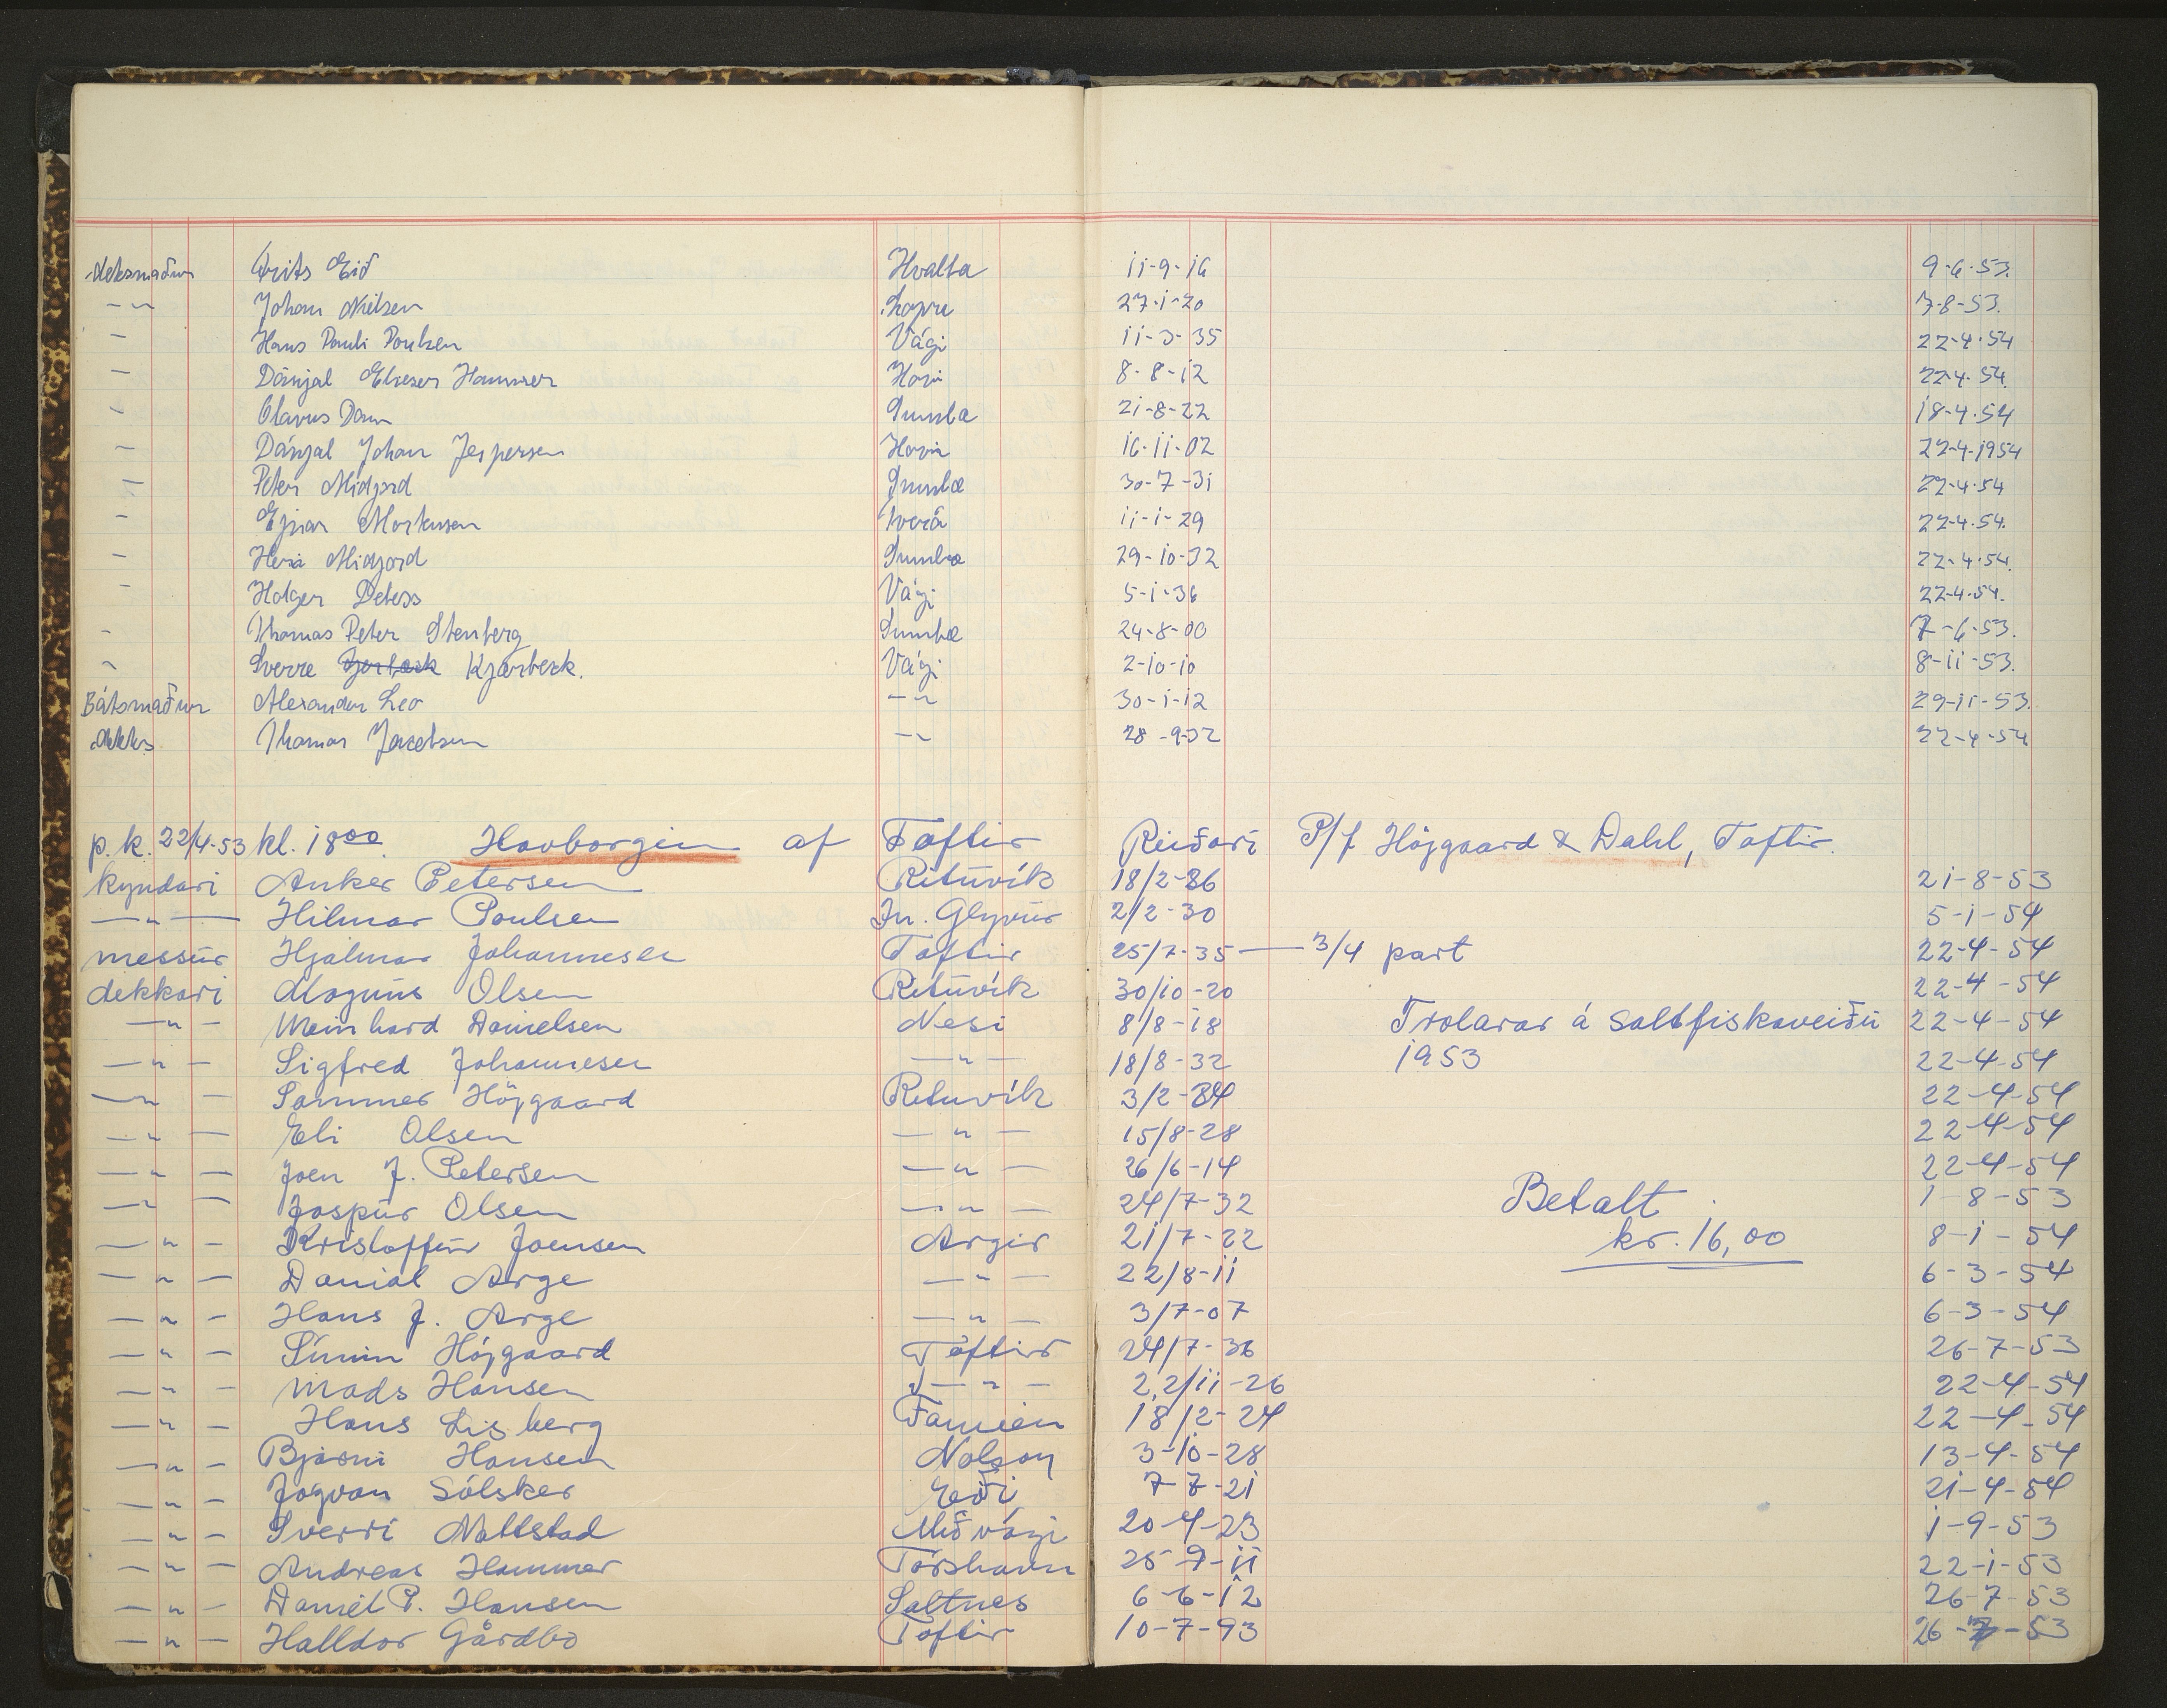 deksmaður Frits Eið Hvalba 11-9-16 9-6-53.
-"- Johan Nielsen Lopra 27-1-20 7-8-53.
- Hans Pauli Poulsen Vági 11-3-35 22-4-54
- Dánjal Elieser Hammer Hovi 8-8-12 22-4-54.
- Olavus Dam Sumba 21-8-22 18-4-54
- Dánjal Johan Jespersen Hovi 16-11-02 22-4-1954
- Peter Midjord Sumba 30-7-31 22-4-54
- Ejnar Mortensen 11-1-29 22-4-54.
- Midjord Sumba 29-10-32 22-4-54.
- Holger Vági 5-1-36 22-4-54.
- Thomas Peter Stenberg Sumba 24-8-00 7-6-53.
- Sverre Kjærbeck. Vági 2-10-10 8-11-53.
Bátsmaður Alexander Leo -"- 30-1-12 29-11-53.
deks Thomas Jacobsen -"- 28-9-32 22-4-54
p.k. 22/4-53 kl. 1800. Havborgin af Toftir Reiðari P/f Højgaard & Dahl, Toftir.
kyndari Anker Petersen Rituvík 18/2-86 21-8-53
-"- Hilmar Poulsen Jn. Glyvur 2/2-30 5-1-54
messur Hjalmar Johannesen Toftir 25/7-35 — 3/4 part 22-4-54
dekkari Magnus Olsen Rituvík 30/10-20 22-4-54
-"- Meinhard Danielsen Nesi 8/8-18 Trolarar á saltfiskaveiðu 22-4-54
-"- Sigfred Johannesen -"- 18/8-32 1953 22-4-54
-"- Sammer Højgaard Rituvík 3/2-84 22-4-54
-"- Eli Olsen -"- 15/8-28 22-4-54
-"- Joen J. Petersen -"- 26/6-14 22-4-54
-"- Jaspur Olsen -"- 24/7-32 Betalt 1-8-53
-"- Kristoffur Joensen Argir 21/7-22 kr. 16,00 8-1-54
-"- Danial Arge -"- 22/8-11 6-3-54
-"- Hans J. Arge -"- 3/7-07 6-3-54
-"- Símin Højgaard Toftir 24/7-36 26-7-53
-"- Mads Hansen -"- 22/11-26 22-4-54
-"- Hans Lisberg Famien 18/2-24 22-4-54
-"- Bjarni Hansen Nolsoy 3-10-28 13-4-54
-"- Jógvan Sólsker Eiði 7-7-21 21-4-54
-"- Sverri Nattestad Miðvági 20-4-23 1-9-53
-"- Andreas Hammer Tórshavn 25-9-11 22-1-53
-"- Daniel P. Hansen Saltnes 6-6-12 26-7-53
-"- Halldor Gårdbo Toftir 10-7-93 26-7-53